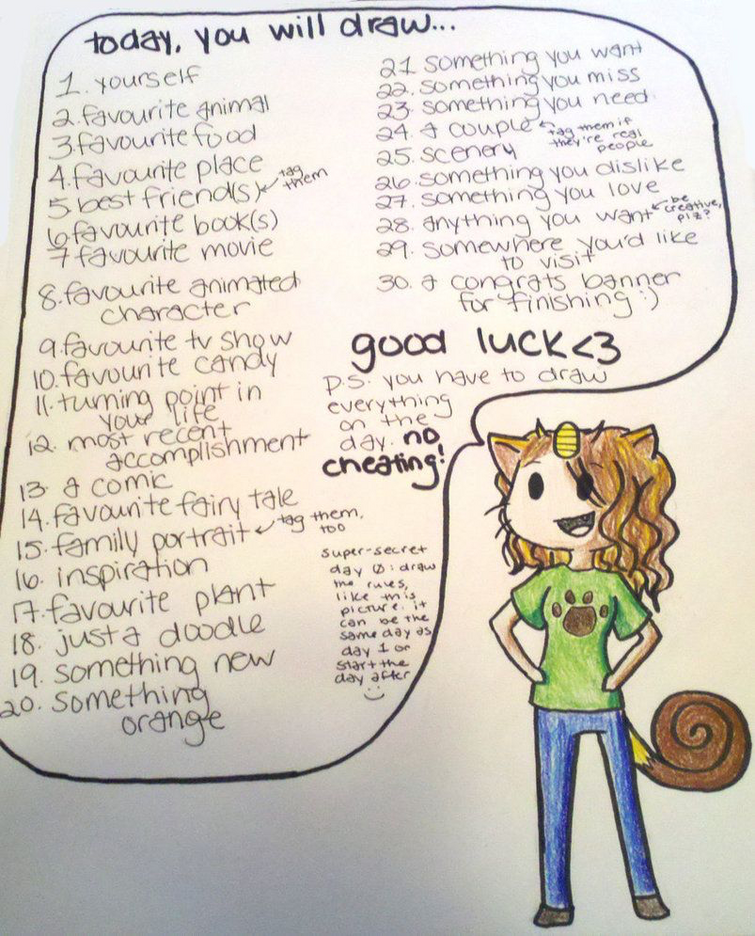 today, you will draw...
1. yourself
2. favourite animal
3. favourite food
4. favourite place
5. best friend(s) ← tag
them
6. favourite book(s)
7. favourite movie
8. favourite animated
character
9. favourite tv show
10. favourite candy
11. turning point in
your life
12. most recent
accomplishment
13. a comic
14. favourite fairy tale
15. family portrait ← tag them,
too
16. inspiration
17. favourite plant
18. just a doodle
19. something new
20. something
orange
21 something you want
22. something you miss
23. something you need
24. a couple ← tag them if
they're real
people
25. scenery
26. something you dislike
27. something you love
28. anything you want ← be
creative,
plz?
29. somewhere you'd like
to visit
30. a congrats banner
for finishing :)
good luck <3
p.s. you have to draw
everything
on the
day. no
cheating!
super-secret
day Ø: draw
the rules,
like this
picture. it
can be the
same day as
day 1 or
start the
day after